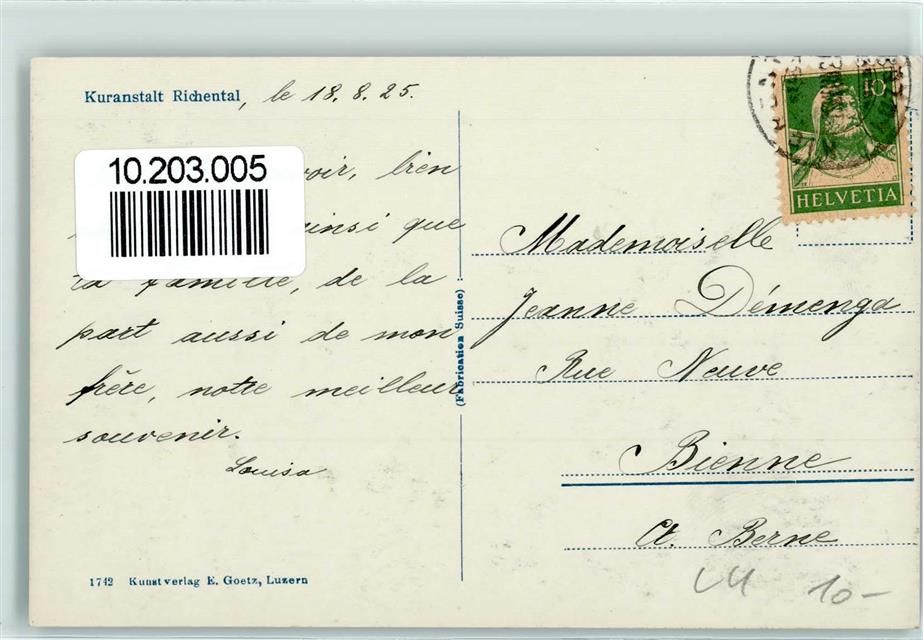 Kuranstalt Richental, le 18. 8. 25.
10.203.005
voir, bien
ainsi que
ta famille, de la
part aussi de mon
frère, notre meilleur
souvenir.
Louisa
(Fabrication Suisse)
1742 Kunstverlag E. Goetz, Luzern
10
HELVETIA
Mademoiselle
Jeanne Démenga
Rue Neuve
Bienne
Ct. Berne
10-